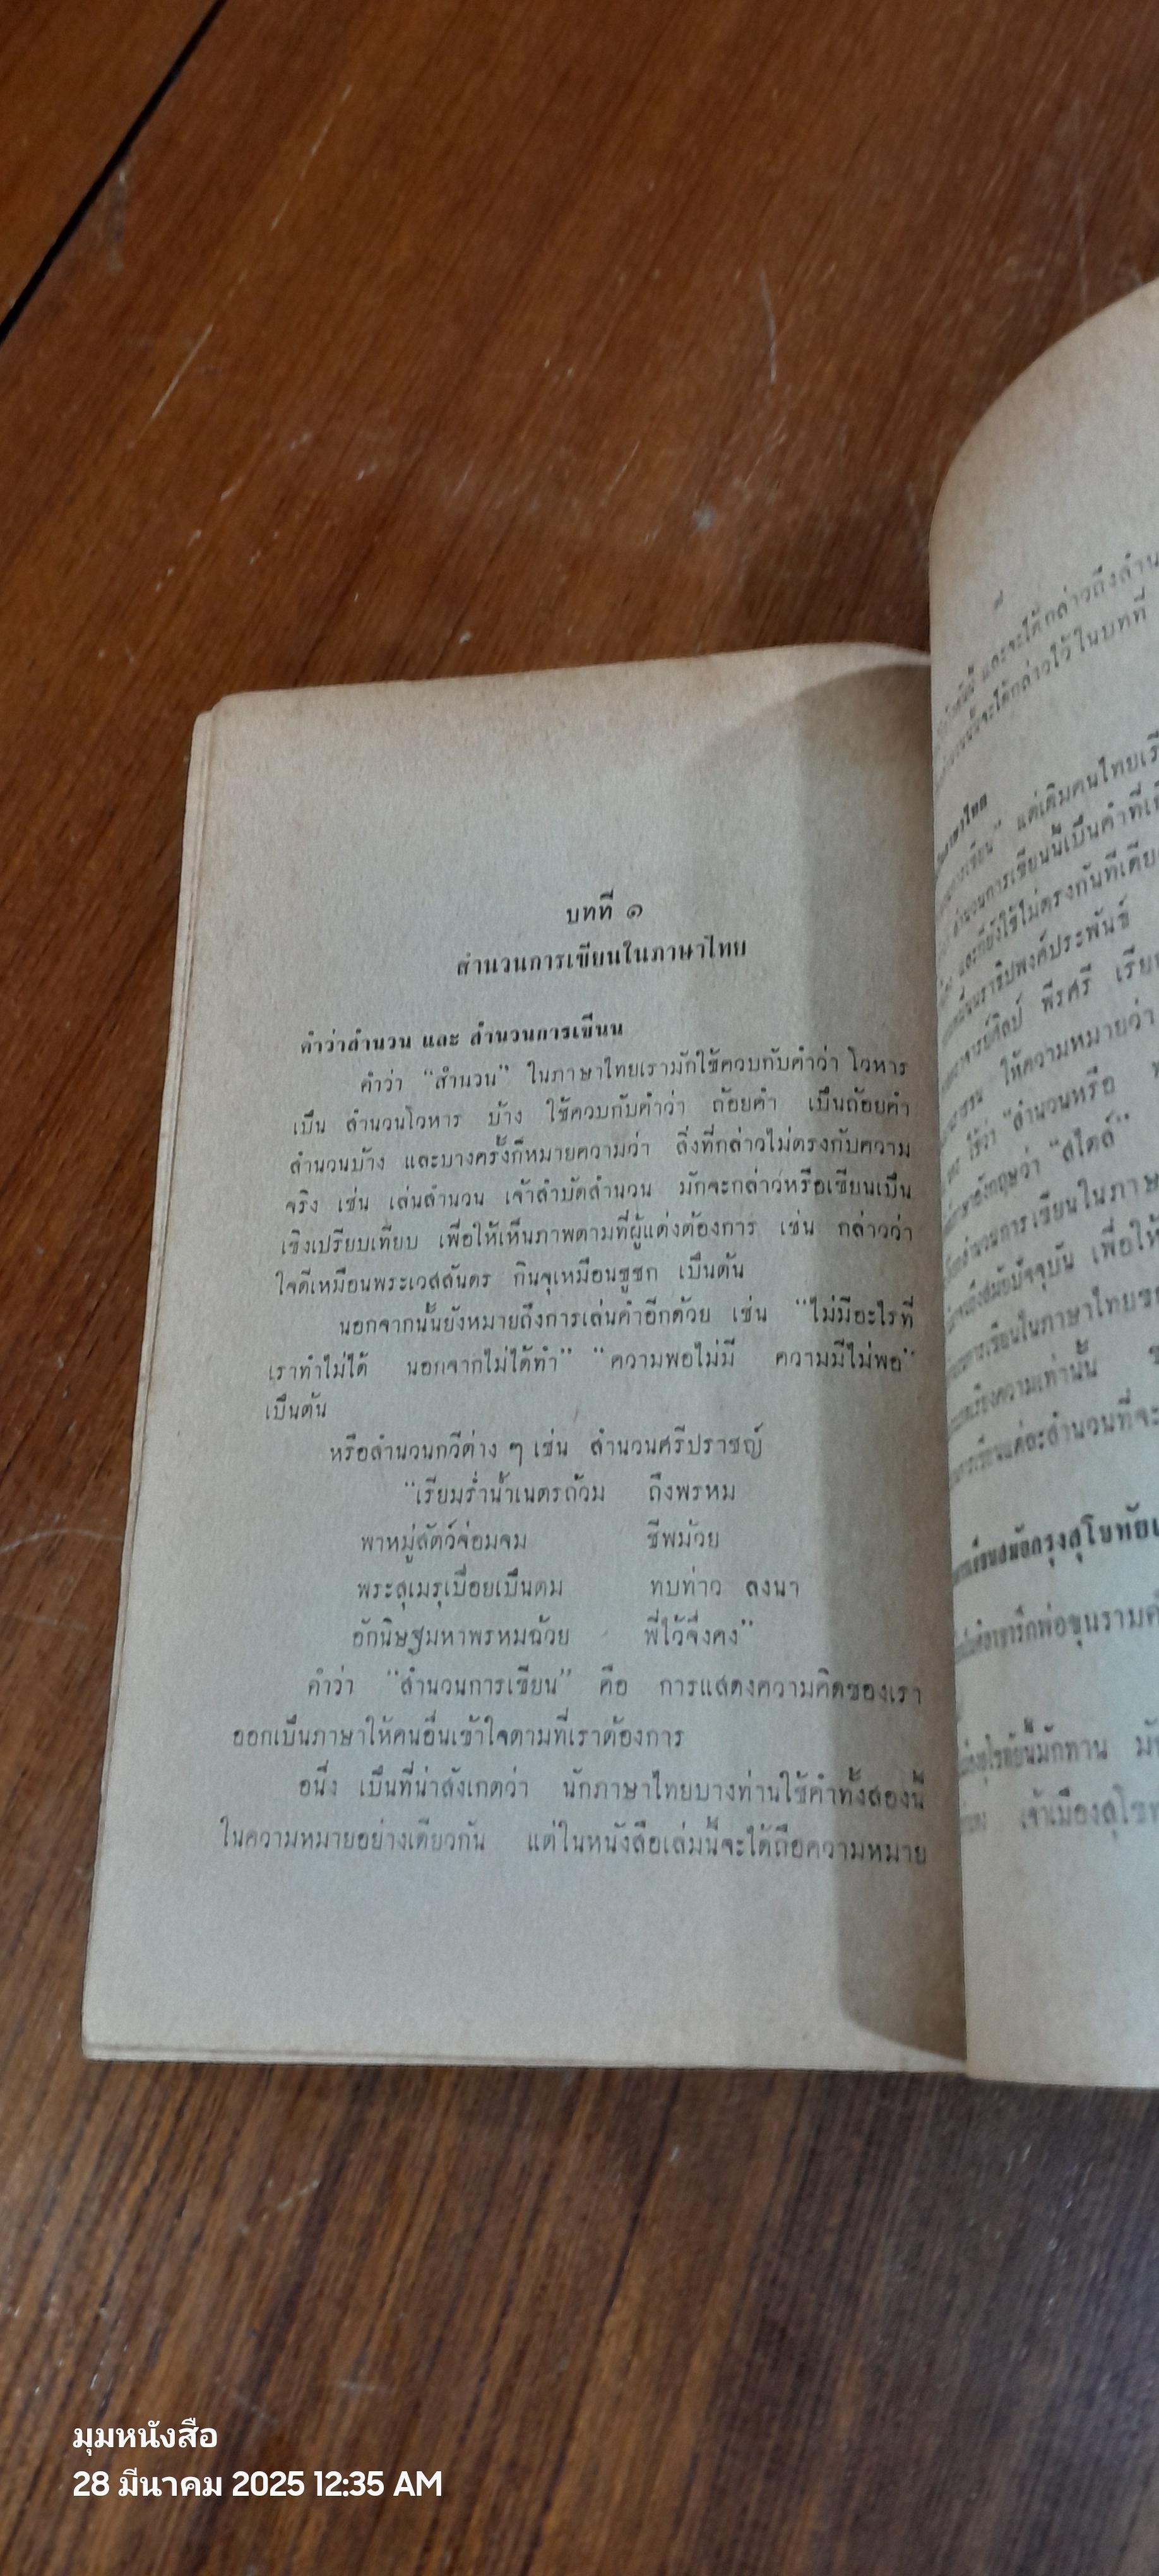 บทที่ ๑
สำนวนการเขียนในภาษาไทย
คำว่าสำนวน และ สำนวนการเขียน
คำว่า “สำนวน” ในภาษาไทยเรามักใช้ควบกับคำว่า โวหาร
เป็น สำนวนโวหาร บ้าง ใช้ควบกับคำว่า ถ้อยคำ เป็นถ้อยคำ
สำนวนบ้าง และบางครั้งก็หมายความว่า สิ่งที่กล่าวไม่ตรงกับความ
จริง เช่น เล่นสำนวน เจ้าสำบัดสำนวน มักจะกล่าวหรือเขียนเป็น
เชิงเปรียบเทียบ เพื่อให้เห็นภาพตามที่ผู้แต่งต้องการ เช่น กล่าวว่า
ใจดีเหมือนพระเวสสันดร กินจุเหมือนชูชก เป็นต้น
นอกจากนั้นยังหมายถึงการเล่นคำอีกด้วย เช่น “ไม่มีอะไรที่
เราทำไม่ได้ นอกจากไม่ได้ทำ” “ความพอไม่มี ความมีไม่พอ”
เป็นต้น
หรือสำนวนกวีต่าง ๆ เช่น สำนวนศรีปราชญ์
“เรียมร่ำน้ำเนตรถ้วม ถึงพรหม
พาหมู่สัตว์จ่อมจม ชีพม้วย
พระสุเมรุเปื่อยเป็นตม ทบท่าว ลงนา
อักนิษฐมหาพรหมฉ้วย พี่ไว้จึ่งคง”
คำว่า “สำนวนการเขียน” คือ การแสดงความคิดของเรา
ออกเป็นภาษาให้คนอื่นเข้าใจตามที่เราต้องการ
อนึ่ง เป็นที่น่าสังเกตว่า นักภาษาไทยบางท่านใช้คำทั้งสองนี้
ในความหมายอย่างเดียวกัน แต่ในหนังสือเล่มนี้จะได้ถือความหมาย
และจะได้กล่าวถึงสำน
จะได้กล่าวไว้ในบทที่
แต่เดิมคนไทยเรี
สำนวนการเขียนนี้เป็นคำที่เพิ
และก็ยังใช้ไม่ตรงกันทีเดีย
นราธิปพงศ์ประพันธ์
ศิลป์ พีรศรี เรีย
ให้ความหมายว่า
ใช้ว่า “สำนวนหรือ
ภาษาอังกฤษว่า “สไตล์”
สำนวนการเขียนในภาษ
ถึงสมัยปัจจุบัน เพื่อให้
การเขียนในภาษาไทยขอ
เรียงความเท่านั้น
การเขียนแต่ละสำนวนที่จะ
สมัยกรุงสุโขทัย
ศิลาจารึกพ่อขุนรามค
มักทาน
เจ้าเมืองสุโข
มุมหนังสือ
28 มีนาคม 2025 12:35 AM